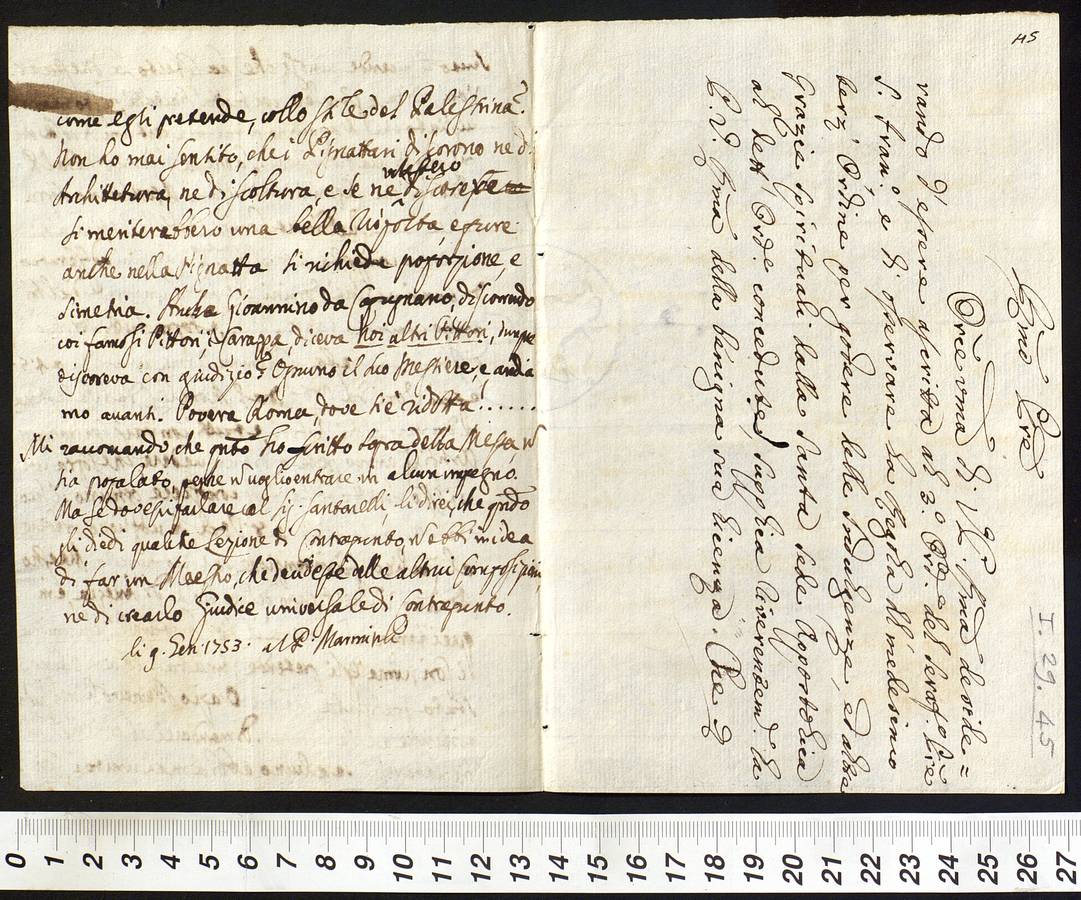 come egli pretende, collo Stile del Palestrina?
Non ho mai sentito, che i Pignattari discorono ne di
Architetura, ne di scoltura, e se ne discore
si meriterebbero una bella risposta, e pure
anche nella Pignatta si richiede proporzione, e
simetria. Anche Gioannino da Capugnano, discorendo
coi famosi Pittori, i Carazza, diceva noi altri Pittori, dunque
discoreva con giudizio? Ognuno il suo Mestiere, e andia
mo avanti. Povera Roma, dove sì è ridotta!......
Mi racomando, che qnto ho scritto sopra della Messa n
sia propalato, perche n voglio entrare in alcun impegno.
Ma se dovesi parlare col Sig. Santarelli, li direi, che qndo
gli diedi qualche Lezione di Contrapunto, n ebbi in idea
di far un Maestro, che decidese alle altrui composizioni,
ne di crearlo Giudice universale di Contrapunto.
li 9. Gen. 1753. al P. Martini
115
I. 29. 45
Rmo Pre
Orce una di V. P. Rma deside=
rando d'essere ascritta al 3.° Ord.e del Seraf. Pre
S. Fran.° e di osservare la Regola del medesimo
terz' Ordine per godere delle Indulgenze, ed altre
Grazie Spirituali dalla Santa Sede Appostolica
al dett' Ord. concedute, supplica riverentem. la
P. V. Rma della benigna sua licenza. Che